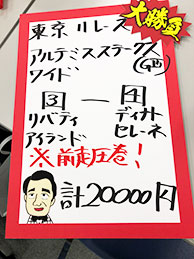 大勝負
東京11レース
アルテミスステークス(GIII)
ワイド
3 — 4
リバティアイランド
ディナトセレーネ
※前走圧巻!
計20000円